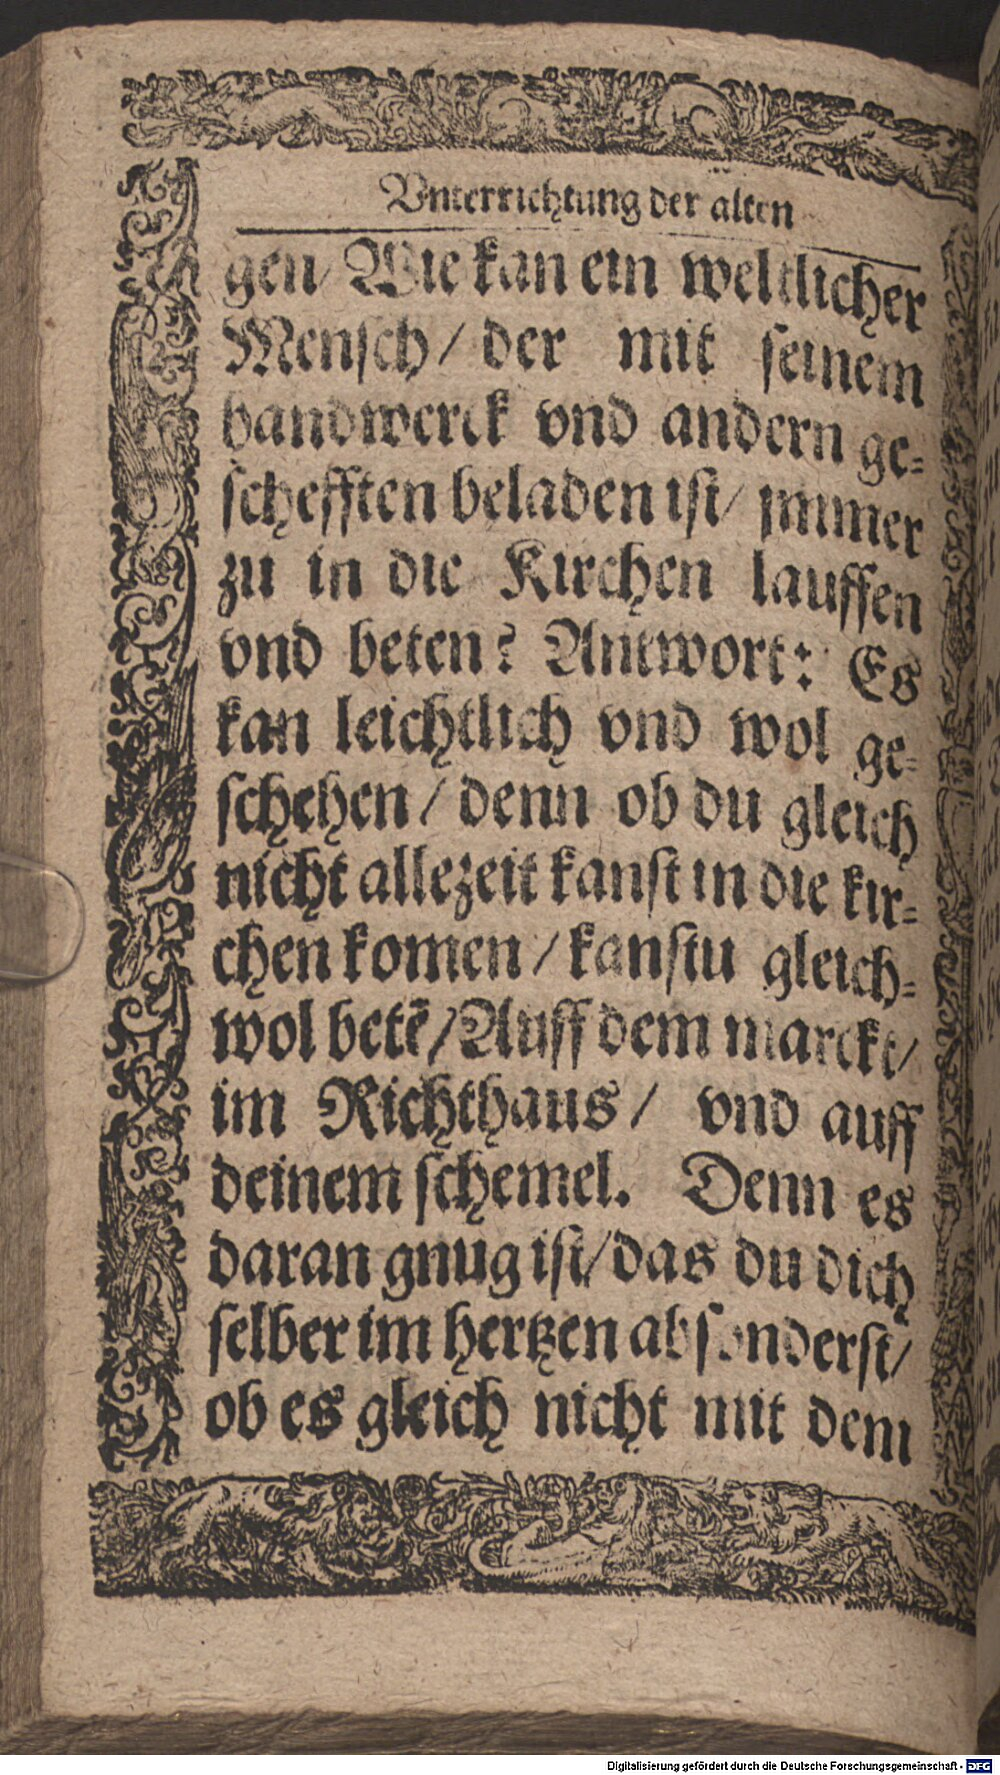 Vnterrichtung der alten
gen/ Wie kan ein weltlicher
Mensch/ der mit seinem
handwerck vnd andern ge-
schefften beladen ist/ jmmer
zu in die Kirchen lauffen
vnd beten? Antwort: Es
kan leichtlich vnd wol ge-
schehen/ denn ob du gleich
nicht allezeit kanst in die kir-
chen komen/ kanstu gleich-
wol betẽ/ Auff dem marckt/
im Richthaus/ vnd auff
deinem schemel. Denn es
daran gnug ist/ das du dich
selber im hertzen absonderst/
ob es gleich nicht mit dem
Digitalisierung gefördert durch die Deutsche Forschungsgemeinschaft - DFG